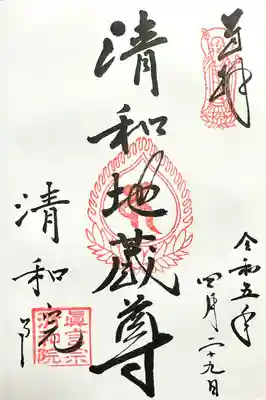 奉拝
令和五年
四月二十九日
清和地蔵尊
清和院
真言宗
清和院